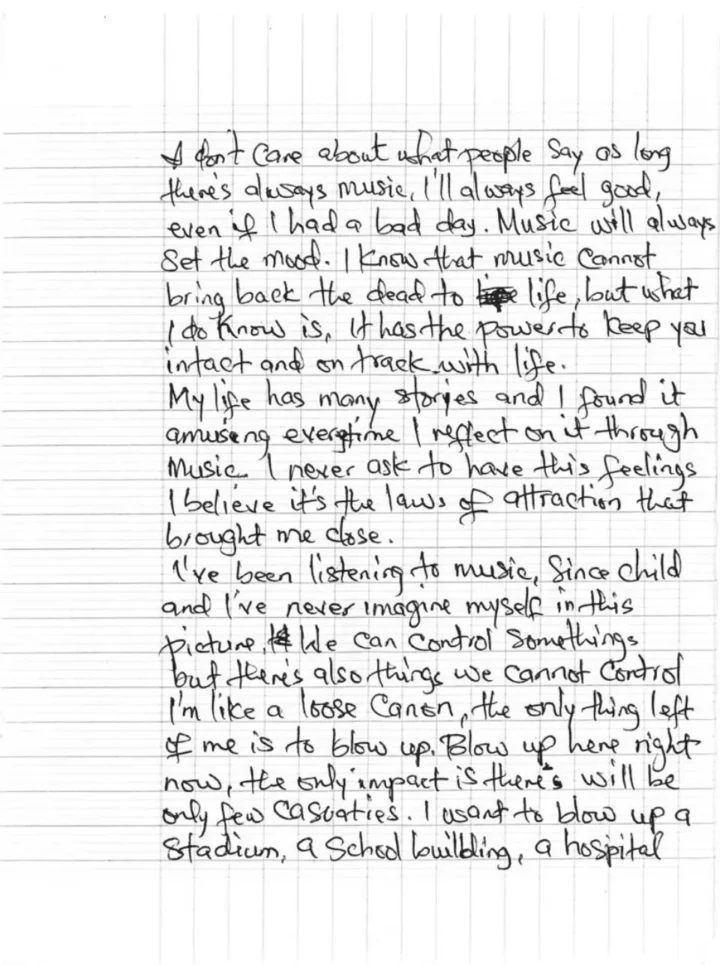 I don't care about what people say as long
there's always music, I'll always feel good,
even if I had a bad day. Music will always
Set the mood. I know that music cannot
bring back the dead to life, but what
I do know is, it has the power to keep you
intact and on track with life.
My life has many storyies and I found it
amusing everytime I reflect on it through
Music. I never ask to have this feelings
I believe it's the laws of attraction that
brought me close.
I've been listening to music, Since child
and I've never imagine myself in this
picture, We can control Somethings
but there's also things we cannot Control
I'm like a loose Canon, the only thing left
of me is to blow up. Blow up here right
now, the only impact is there's will be
only few Casuaties. I want to blow up a
Stadium, a School builbling, a hospital